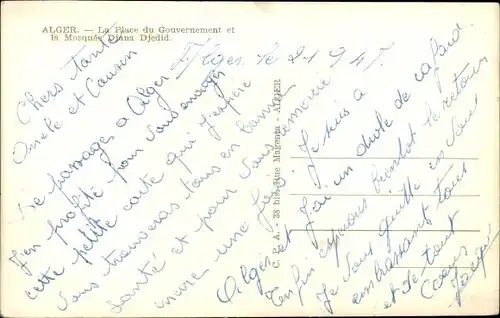 ALGER. — La Place du Gouvernement et
la Mosquée Djana Djedid.
Alger le 21 9 47
Chers tante
Oncle et Cousin
De passage a Alger
J'en profite pour vous envoyer
cette petite carte qui j'espère
vous trouveras tous en bonne
santé et pour vous remercie
encore une fois
C. A. P. - 38 bis, Rue Magenta - ALGER
Je suis a
Alger et J'ai un drole de cafard.
Enfin esperons bientot le retour
Je vous quitte en vous
embrassant tous
et de tout
Coeur
Jacqui